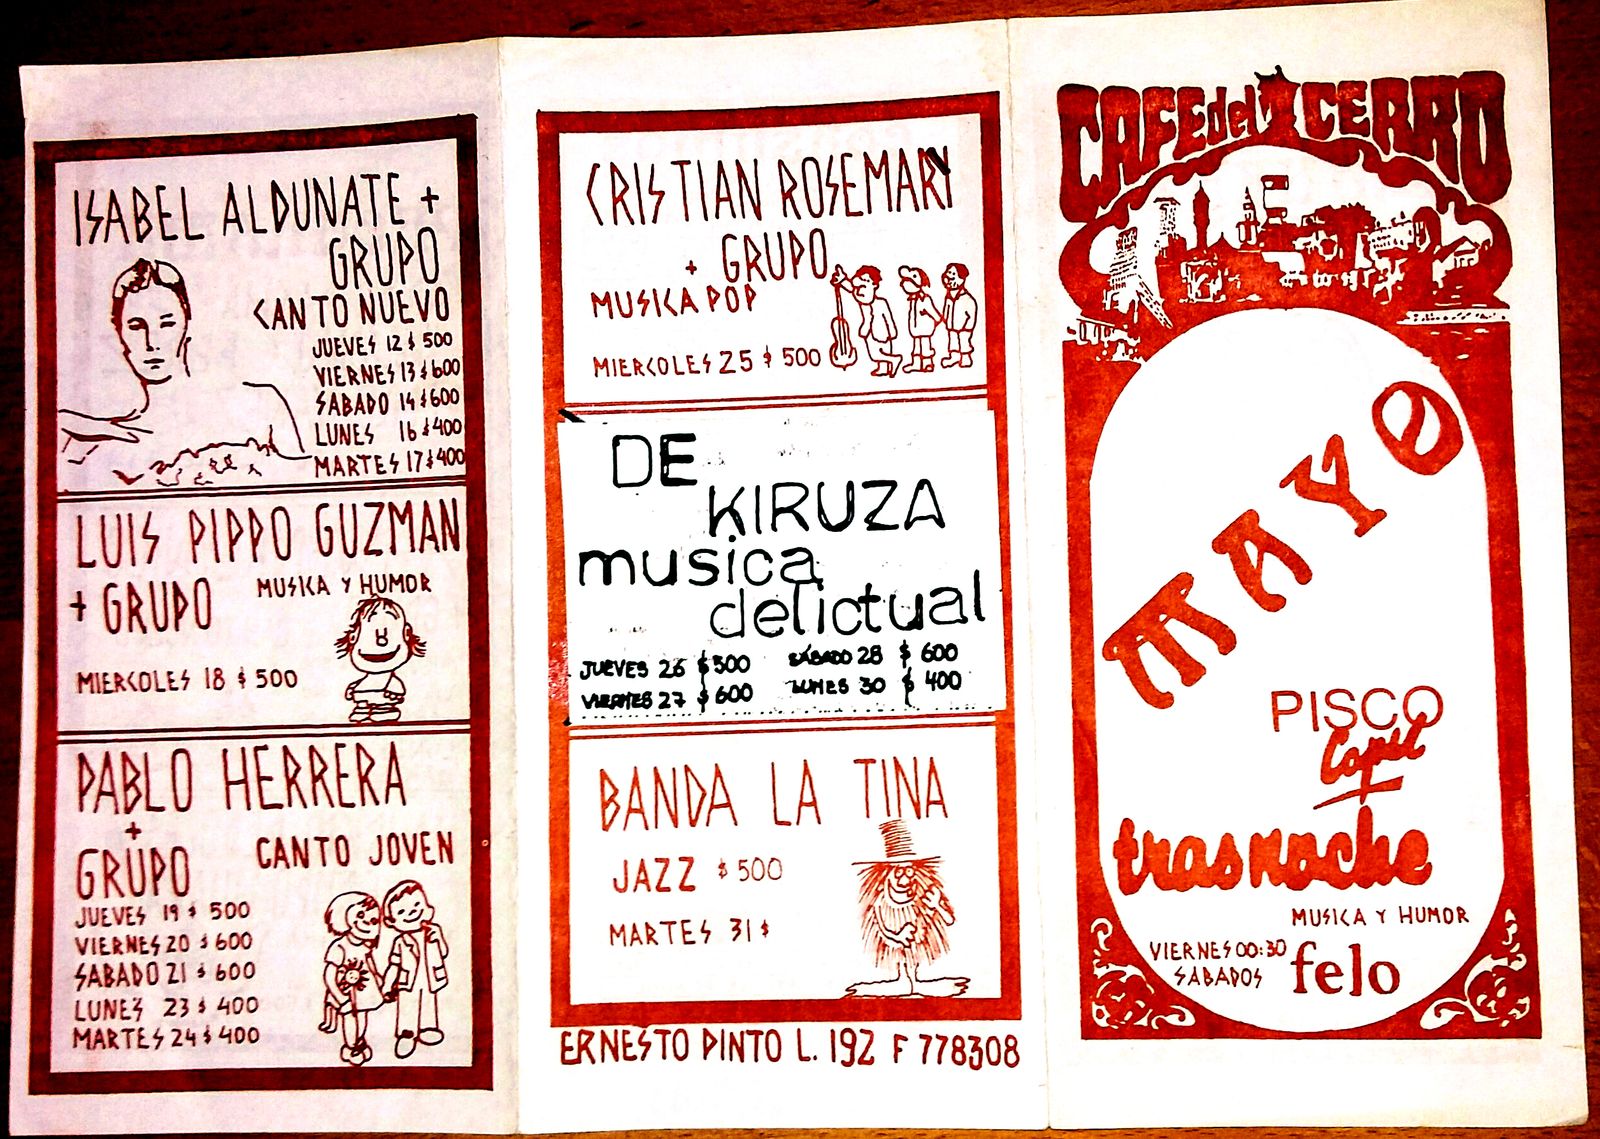 ISABEL ALDUNATE +
GRUPO
CANTO NUEVO
JUEVES 12 $ 500
VIERNES 13 $ 600
SABADO 14 $ 600
LUNES 16 $ 400
MARTES 17 $ 400
LUIS PIPPO GUZMAN
+ GRUPO MUSICA Y HUMOR
MIERCOLES 18 $ 500
PABLO HERRERA
+
GRUPO CANTO JOVEN
JUEVES 19 $ 500
VIERNES 20 $ 600
SABADO 21 $ 600
LUNES 23 $ 400
MARTES 24 $ 400
CRISTIAN ROSEMARY
+ GRUPO
MUSICA POP
MIERCOLES 25 $ 500
DE
KIRUZA
musica
delictual
JUEVES 26 $ 500 SÁBADO 28 $ 600
VIERNES 27 $ 600 LUNES 30 $ 400
BANDA LA TINA
JAZZ $ 500
MARTES 31 $
ERNESTO PINTO L. 192 F 778308
CAFE del CERRO
MAYO
PISCO
Capel
trasnoche
MUSICA Y HUMOR
VIERNES 00:30
SABADOS felo